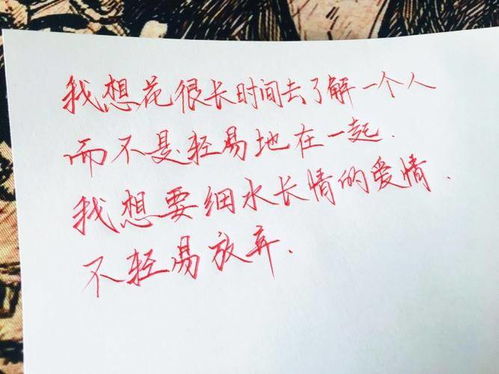 我想花很长时间去了解一个人
而不是轻易地在一起.
我想要细水长情的爱情.
不轻易放弃.